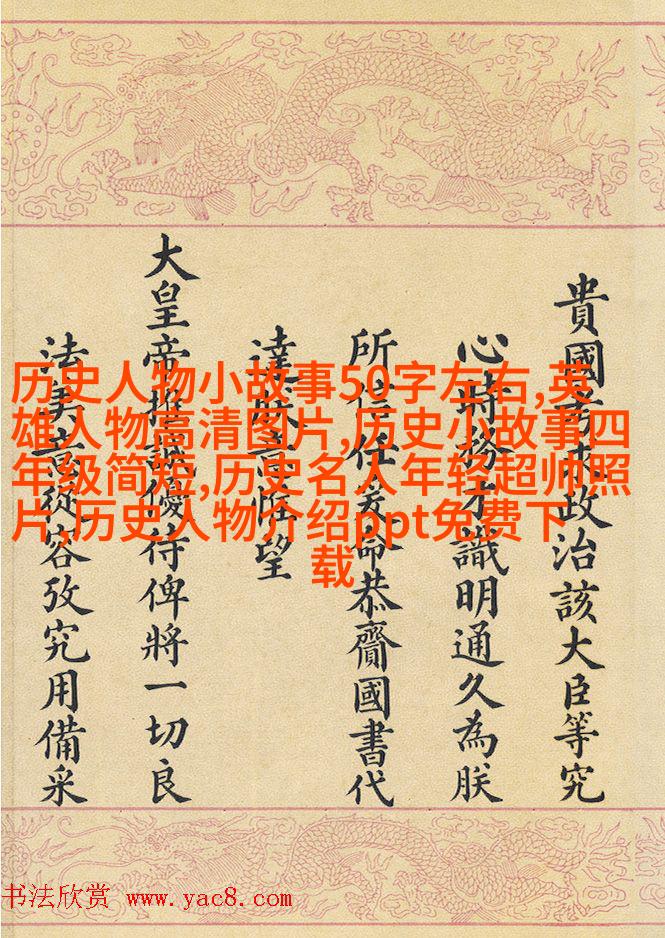 貴國政治該大臣等究
心時務才識明通久為朕
所信任爰命恭齎國書代
達朕意望
大皇帝推誠優待俾將一切良
法美意從容攷究用備采
历史人物小故事50字左右,英
雄人物高清图片,历史小故事四
年级简短,历史名人年轻超帅照
片,历史人物介绍ppt免费下
载
书法欣赏 www.yac8.com